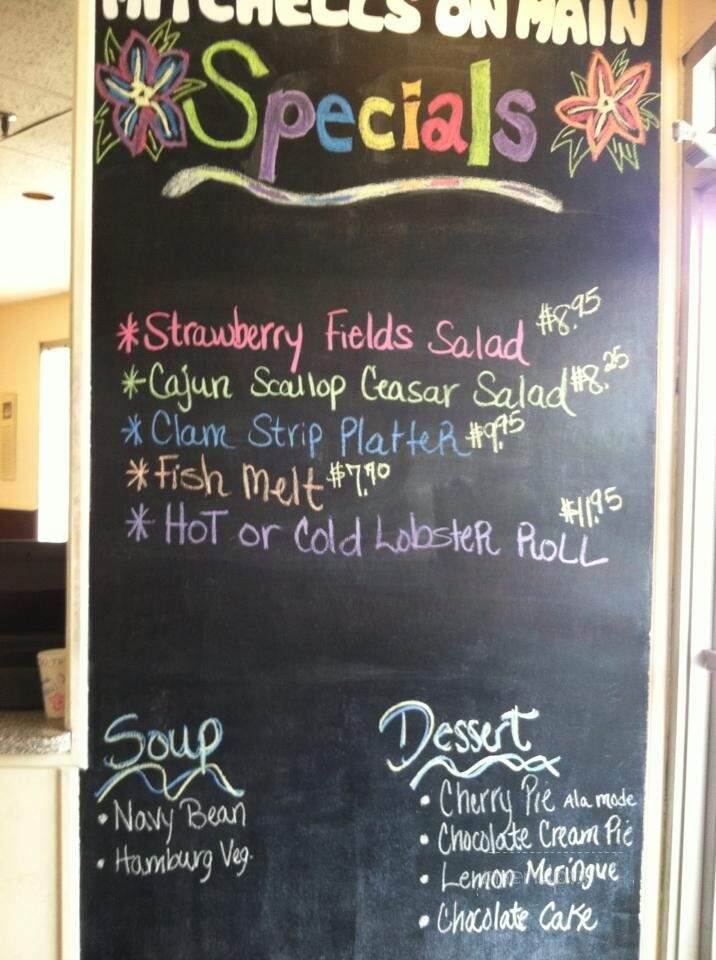 MITCHELLS ON MAIN
Specials
*Strawberry Fields Salad $8.95
*Cajun Scallop Ceasar Salad $8.25
*Clam Strip Platter $9.95
*Fish Melt $7.90
*Hot or Cold Lobster Roll $11.95
Soup
• Navy Bean
• Hamburg Veg.
Dessert
• Cherry Pie Ala mode
• Chocolate Cream Pie
• Lemon Meringue
• Chocolate Cake